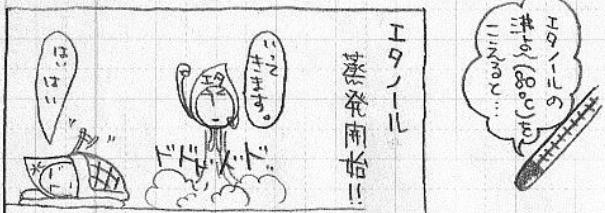 エタノールの
沸点(80℃)を
こえると…
エタノール
蒸発開始!!
いって
きます。
エタ
ドドドドド
はい
はい